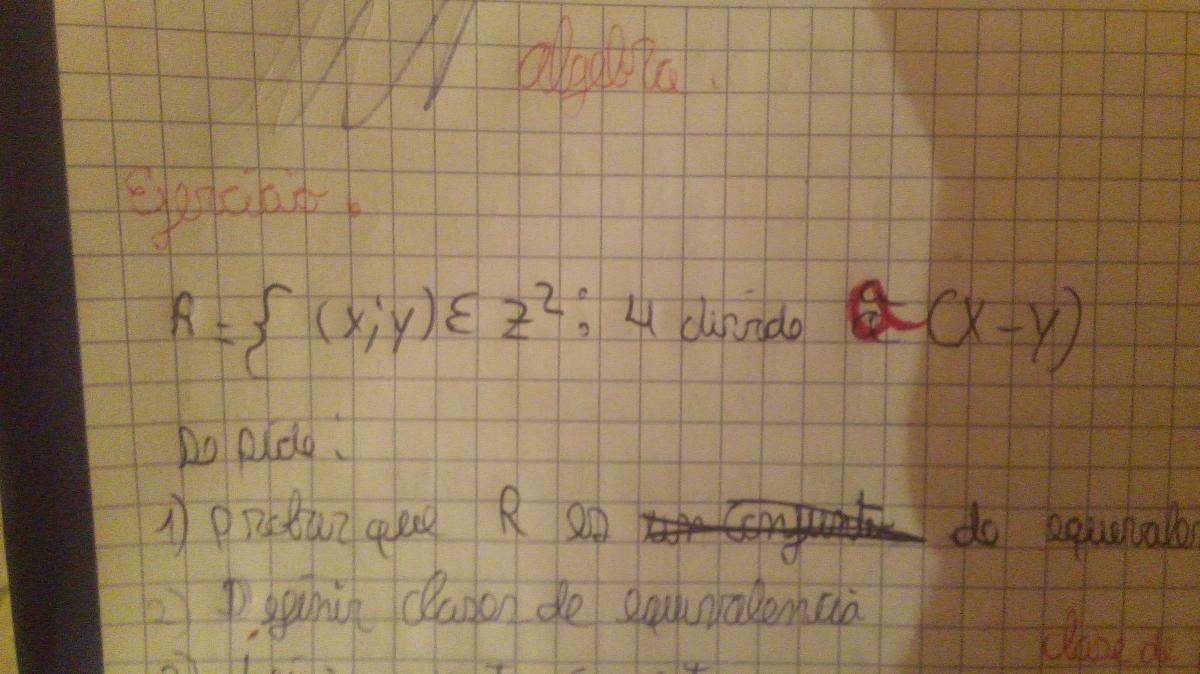 Algebra.
Ejercicio.
R = { (x;y) ∈ Z²: 4 divide a (x-y)
Se pide:
1) probar que R es de equivalen
2) Definir clases de equivalencia
clase de
3)